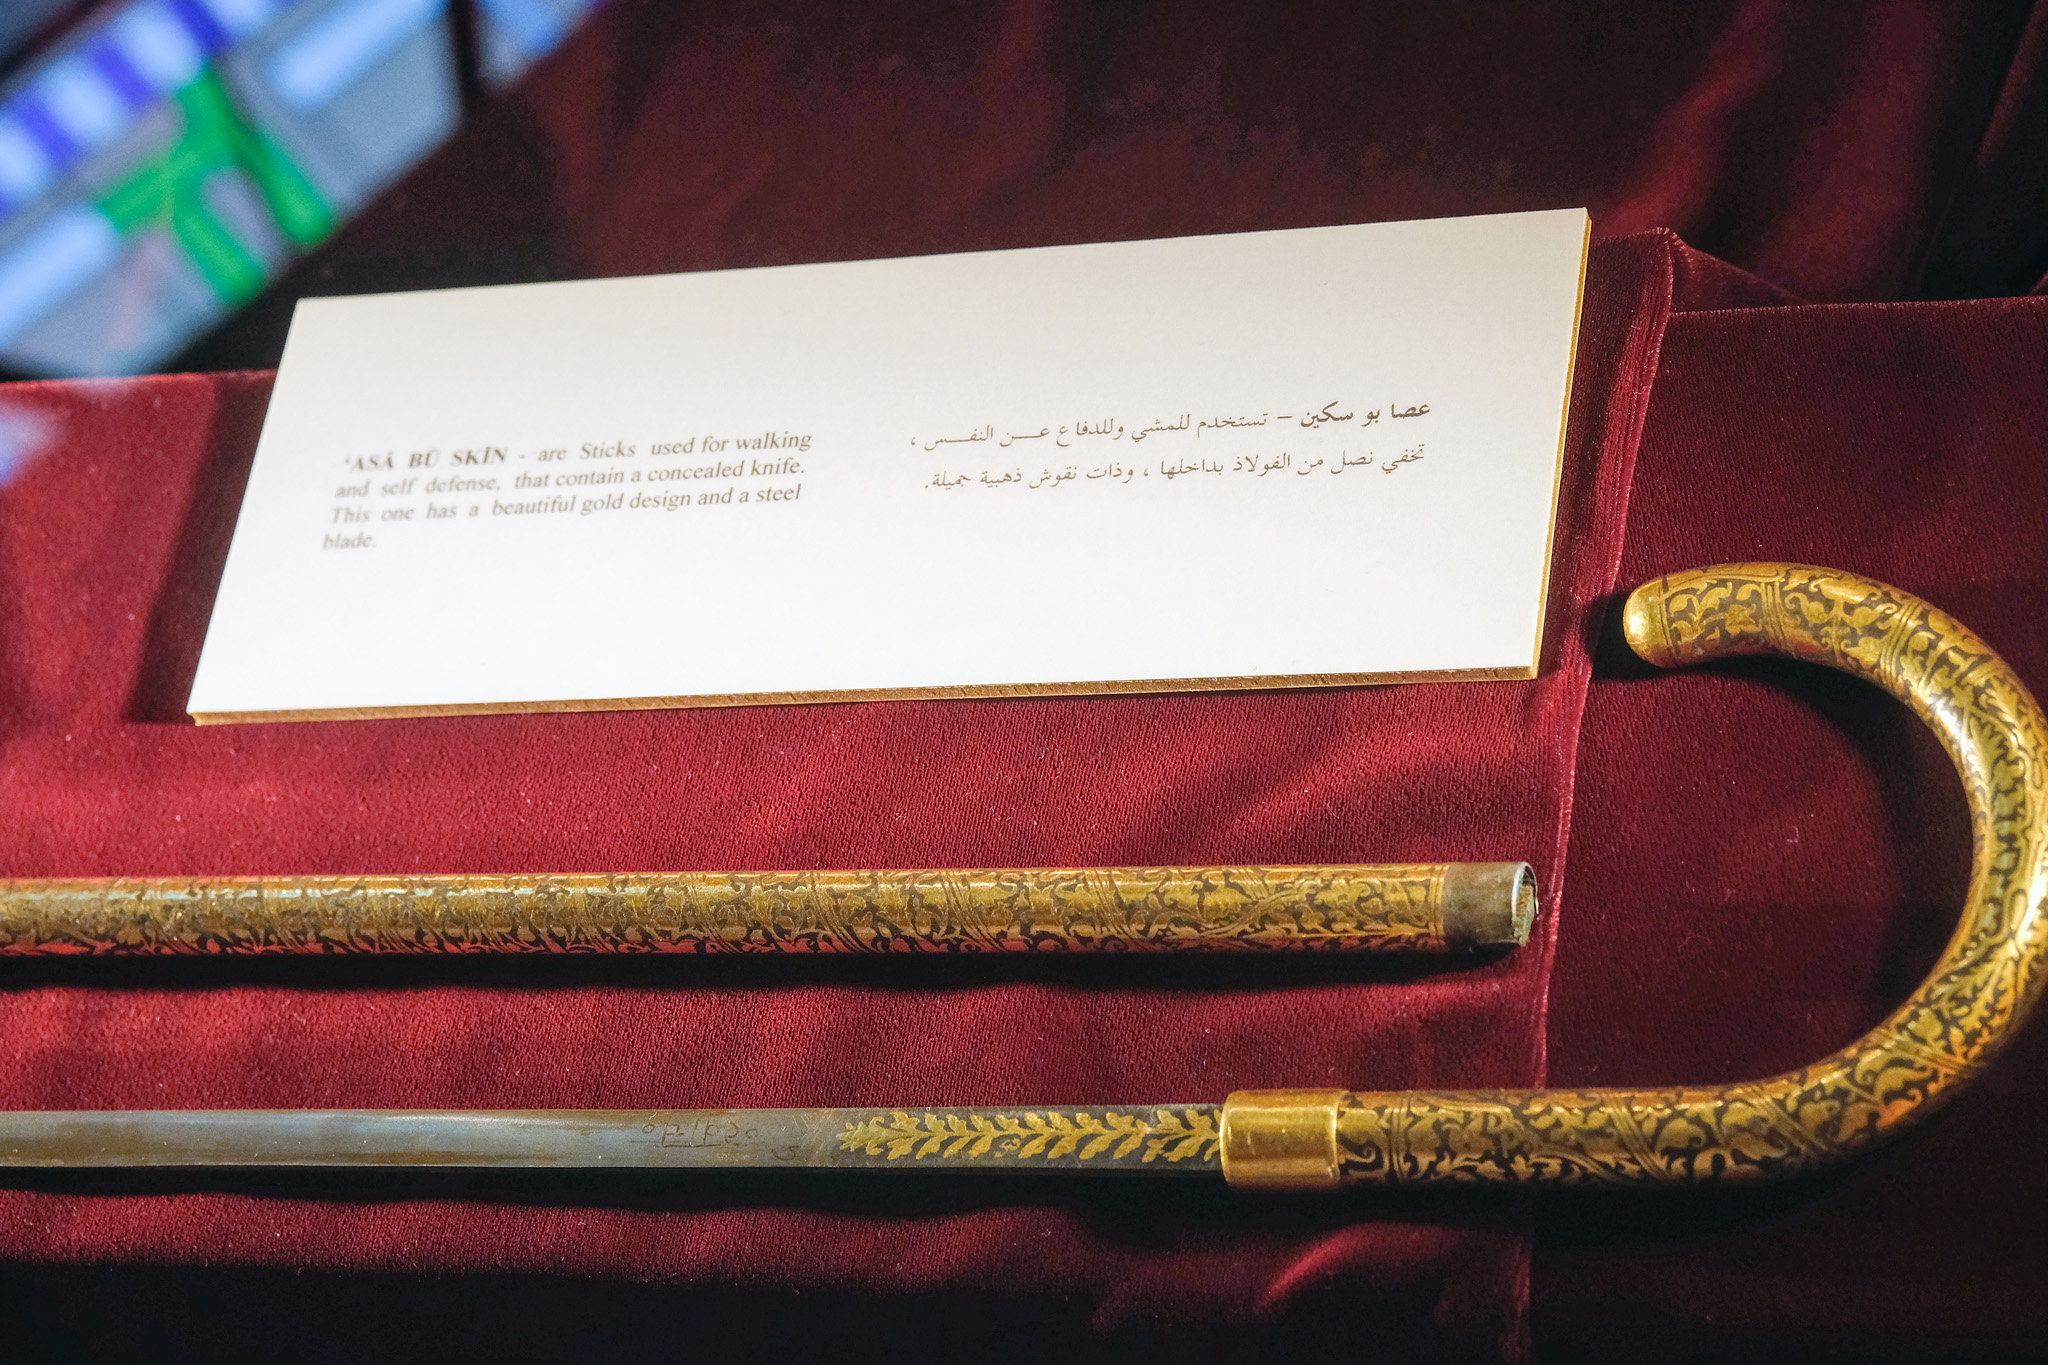 ‘ASĀ BŪ SKĪN - are Sticks used for walking
and self defense, that contain a concealed knife.
This one has a beautiful gold design and a steel
blade.
عصا بو سكين – تستخدم للمشي وللدفاع عن النفس ،
تخفي نصل من الفولاذ بداخلها ، وذات نقوش ذهبية جميلة.